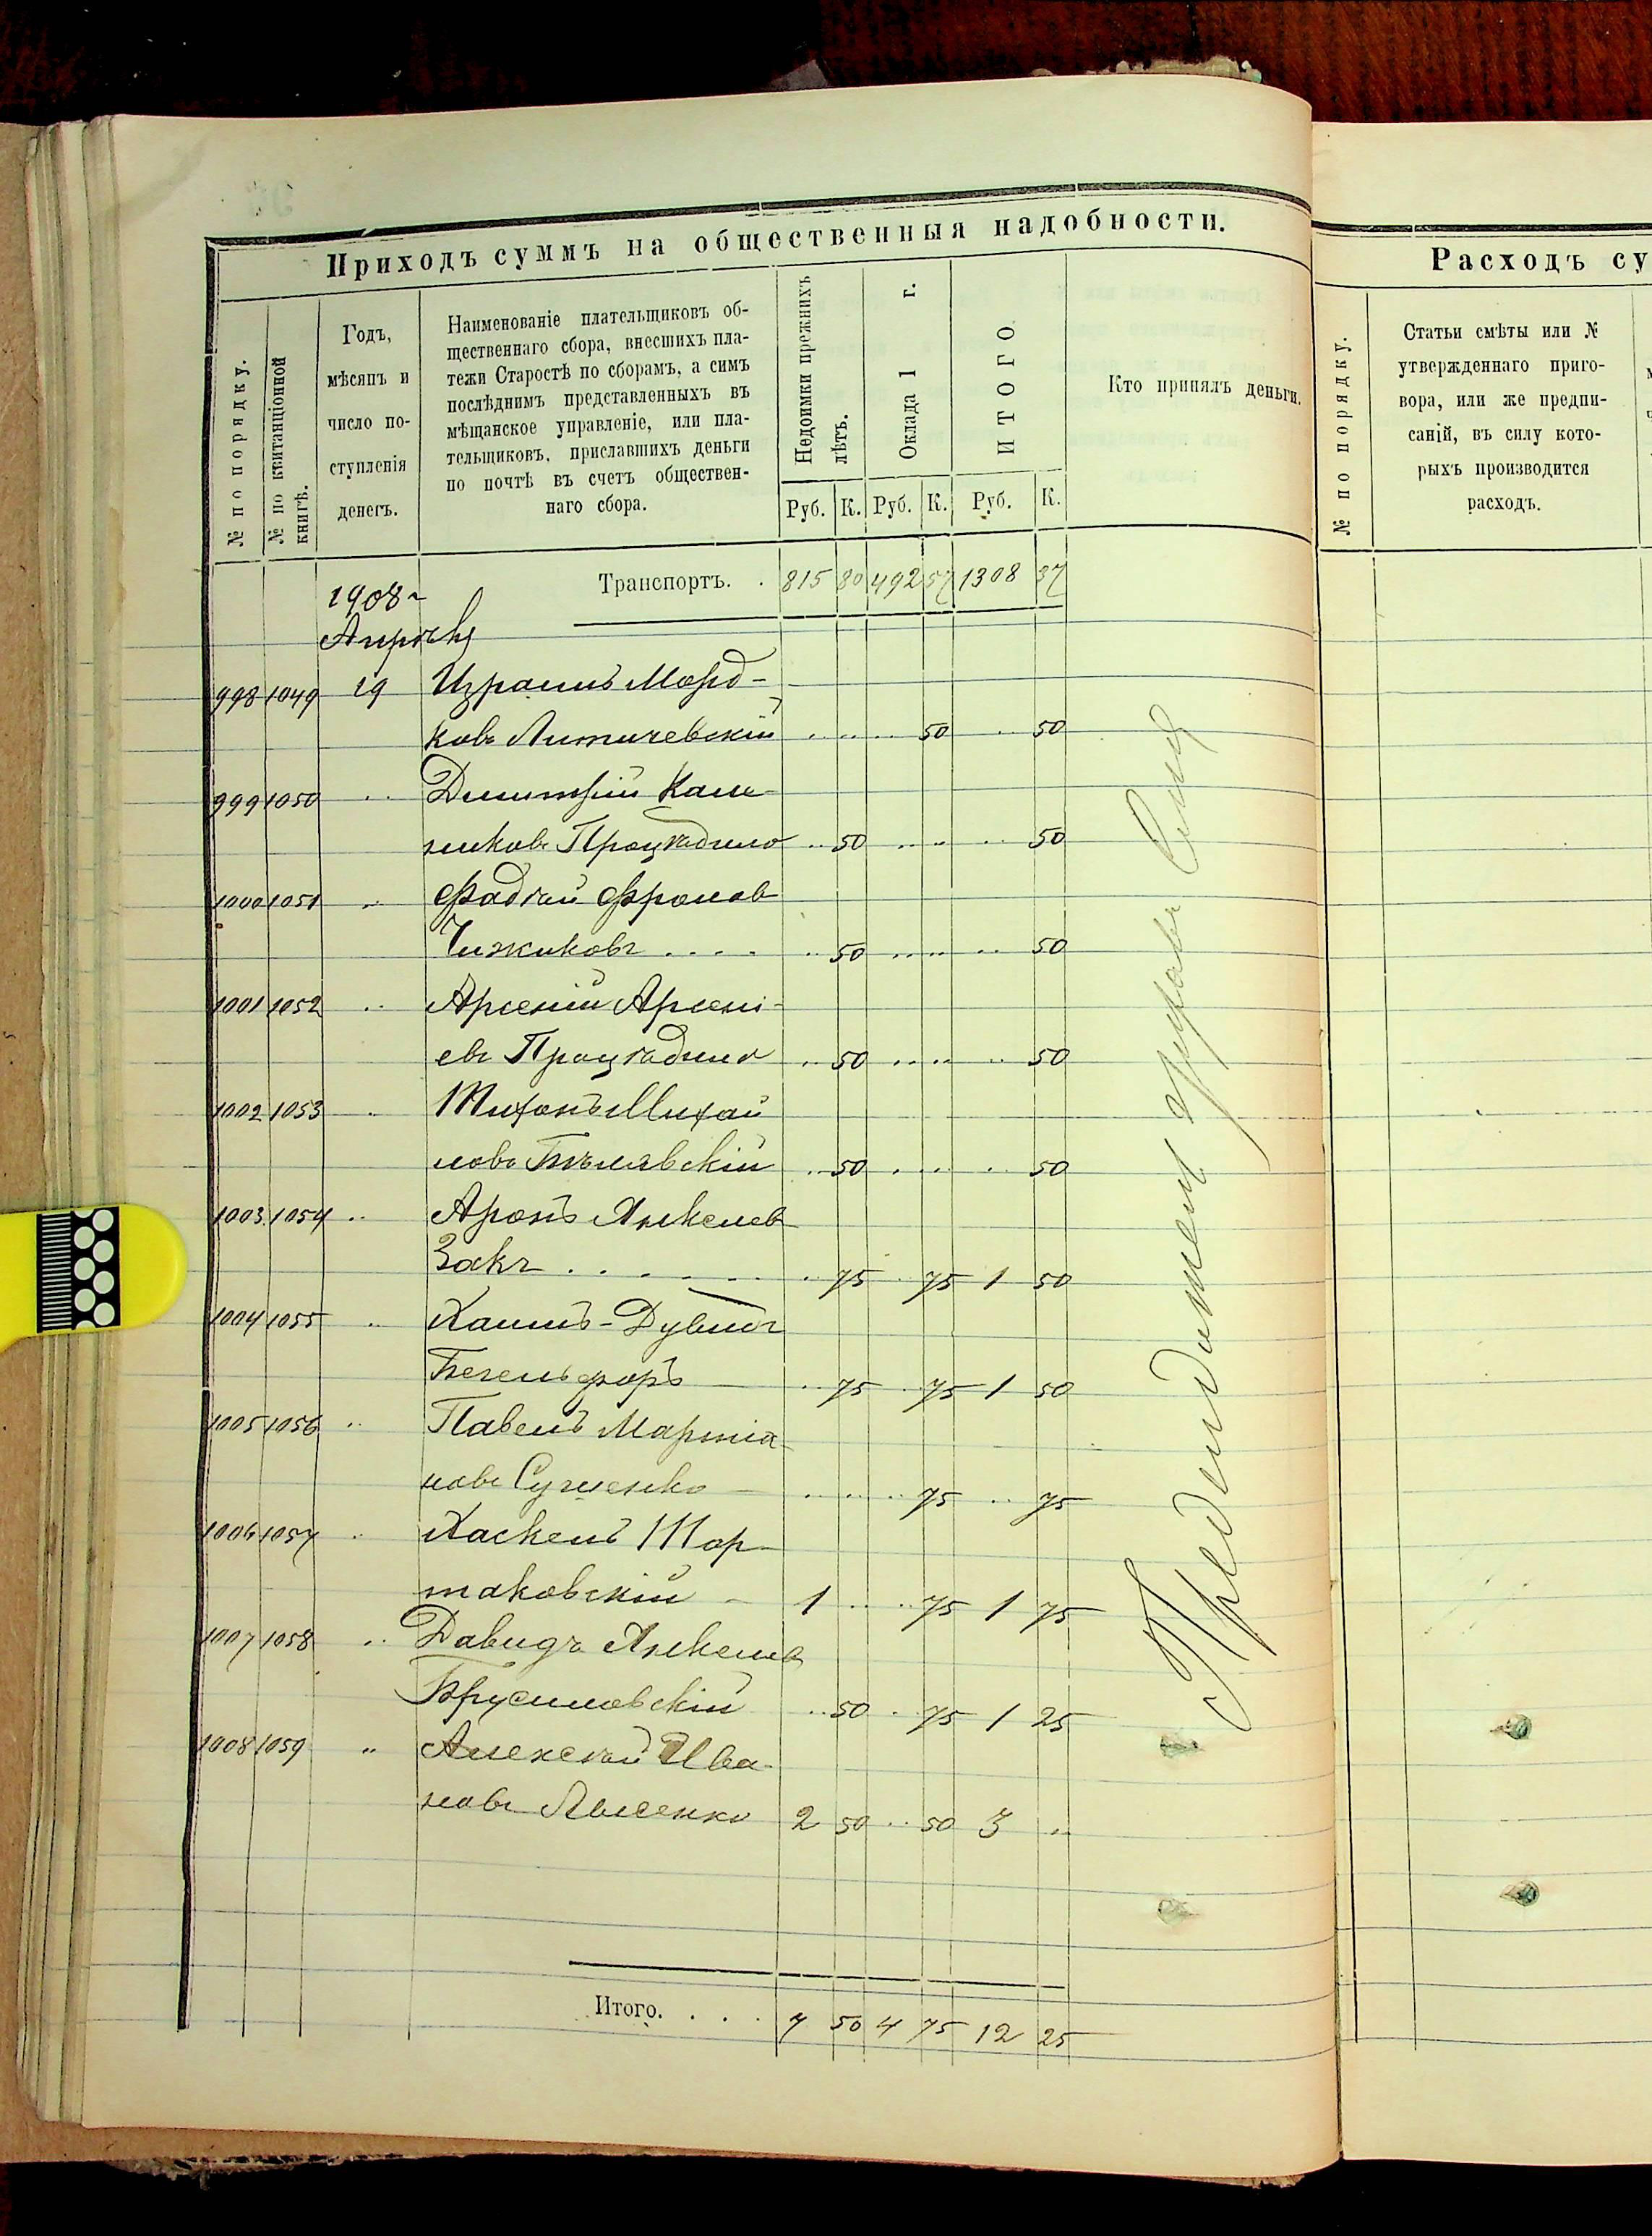 Приходъ суммъ на общественныя надобности.
№ по порядку.
№ по квитанціонной
книгѣ.
Годъ,
мѣсяцъ и
число по-
ступленія
денегъ.
Наименованіе плательщиковъ об-
щественнаго сбора, внесшихъ пла-
тежи Старостѣ по сборамъ, а симъ
послѣднимъ представленныхъ въ
мѣщанское управленіе, или пла-
тельщиковъ, приславшихъ деньги
по почтѣ въ счетъ обществен-
наго сбора.
Недоимки прежнихъ
лѣтъ.
Оклада 1 г.
ИТОГО
Кто принялъ деньги.
Руб. К. Руб. К. Руб. К.
1908 г
Транспортъ. . 815 80 492 57 1308 37
Апрѣль
998 1049 19 Израиль Морд-
ковъ Литичевскій 50 50
999 1050 Димитрій Кали-
никовъ 50 50
1000 1051 Фадѣй Фролов
Чижиковъ 50 50
1001 1052 Арсеній Арсені-
евъ 50 50
1002 1053 Тихонъ Михай
ловъ Бѣлявскій 50 50
1003 1054 Аронъ Янкелев
Закъ 75 75 1 50
1004 1055 Хаимъ-Дувидъ
75 75 1 50
1005 1056 Павелъ Мартіа-
новъ Сущенко 75 75
1006 1057 Хаскель Пор-
таковскій 1 75 1 75
1007 1058 Давидъ Янкелев
Брусиловскій 50 75 1 25
1008 1059 " Алексѣй Ива-
новъ Лысенко 2 50 50 3
Итого. . . . 7 50 4 75 12 25
Расходъ су
№ по порядку.
Статьи смѣты или №
утвержденнаго приго-
вора, или же предпи-
саній, въ силу кото-
рыхъ производится
расходъ.